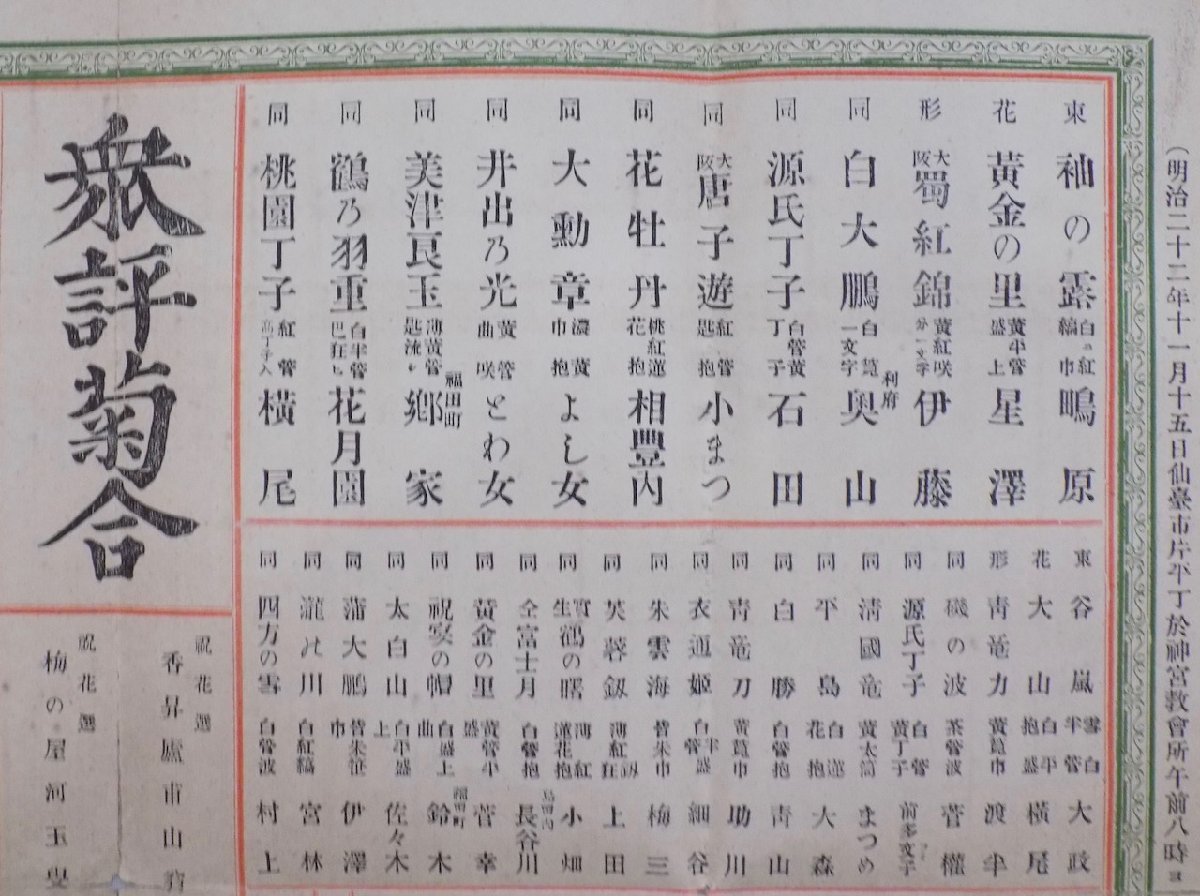 (明治二十二年十一月十五日仙臺市片平丁於神宮敎會所午前八時ヨ
東 袖の露 白ニ紅縞巾 鴫原
花 黃金の里 黃半管盛上 星澤
形 大阪 蜀紅錦 黃紅咲分一文字 伊藤
同 白大鵬 白筥一文字 利府 奥山
同 源氏丁子 白管黃丁子 石田
同 大阪 唐子遊 紅管匙抱 小まつ
同 花牡丹 桃紅蓮花抱 相豊内
同 大勳章 濃黃巾抱 よし女
同 井出乃光 黃管曲咲 とわ女
同 美津艮玉 薄黃管匙流し 福田町 鄕家
同 鶴乃羽重 白半管巴狂ち 花月園
同 桃園丁子 紅管高丁子入 橫尾
東 谷嵐 雪白半管 大政
花 大山 白平抱盛 橫尾
形 靑竜力 黃筥巾 渡半
同 磯の波 茶管波 菅權
同 源氏丁子 白管黃丁子 前多文子
同 淸國竜 黃太筒 まつめ
同 平島 白蓮花抱 大森
同 白勝 白管抱 靑山
同 靑竜刀 黃筥巾 助川
同 衣通姬 白半管盛 細谷
同 朱雲海 皆朱巾 梅三
同 芙蓉劔 薄紅劔狂 上田
同 實生 鶴の曙 薄紅蓮花抱 小畑
同 仝 富士月 白管抱 長谷川
同 黃金の里 黃管半盛 菅幸
同 祝宴の帽 白盛上曲 福田町 鈴木
同 太白山 白平盛上 佐々木
同 蒲大鵬 皆朱笹巾 伊澤
同 瀧の川 白紅縞 宮林
同 四方の雪 白管波 村上
衆評菊合
祝花選
香昇廬市山
祝花選
梅の屋河玉叟